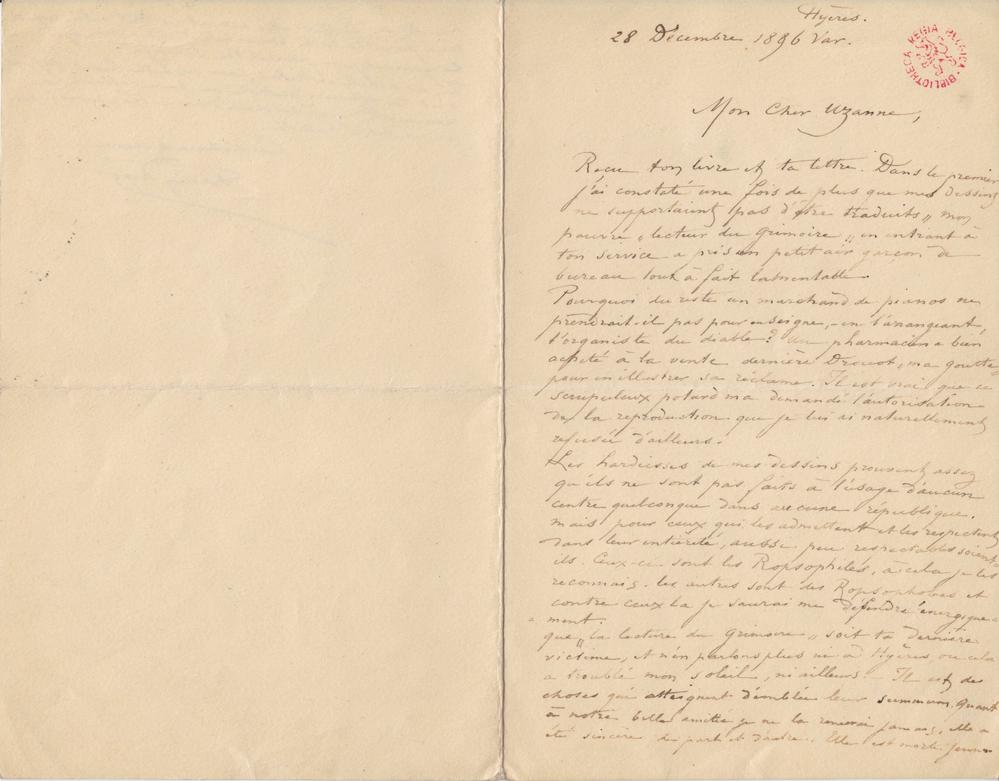 Hyères.
28 Décembre 1896 Var.
BIBLIOTHECA REGIA BELGICA
Mon Cher Uzanne,
Reçu ton livre et ta lettre. Dans le premier
j'ai constaté une fois de plus que mes dessins
ne supportaient pas d'être traduits „ mon
pauvre „ lecteur du Grimoire „ en entrant à
ton service a pris un petit air garçon de
bureau tout à fait lamentable.
Pourquoi du reste un marchand de pianos ne
prendrait-il pas pour enseigne, en l'arrangeant,
l'organiste du diable? Un pharmacien a bien
acheté à la vente dernière Drouot, ma goutte
pour en illustrer sa réclame. Il est vrai que ce
scrupuleux potard m'a demandé l'autorisation
de la reproduction que je lui ai naturellement
refusée d'ailleurs.
Les hardiesses de mes dessins prouvent assez
qu'ils ne sont pas faits à l'usage d'aucun
centre quelconque dans aucune république.
mais pour ceux qui les admettent et les respectent
dans leur entièreté, aussi peu respectables soient
ils. Ceux-ci sont les Ropsophiles, à cela je les
reconnais. les autres sont des Ropsophobes et
contre ceux la je saurai me défendre énergique
ment.
que „ la lecture du Grimoire „ soit ta dernière
victime, et n'en parlons plus ni à Hyères, ou cela
a troublé mon soleil, ni ailleurs — Il est des
choses qui atteignent d'emblée leur summum. Quant
à notre belle amitié je ne la renierai jamais, elle a
été sincère de part et d'autre. Elle est morte jeune